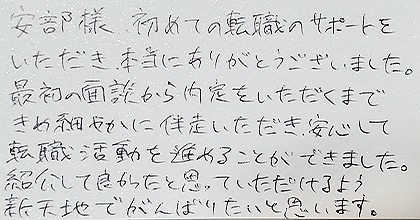 安部様、初めての転職のサポートを
いただき、本当にありがとうございました。
最初の面談から内定をいただくまで
きめ細やかに伴走いただき、安心して
転職活動を進めることができました。
紹介して良かったと思っていただけるよう
新天地でがんばりたいと思います。